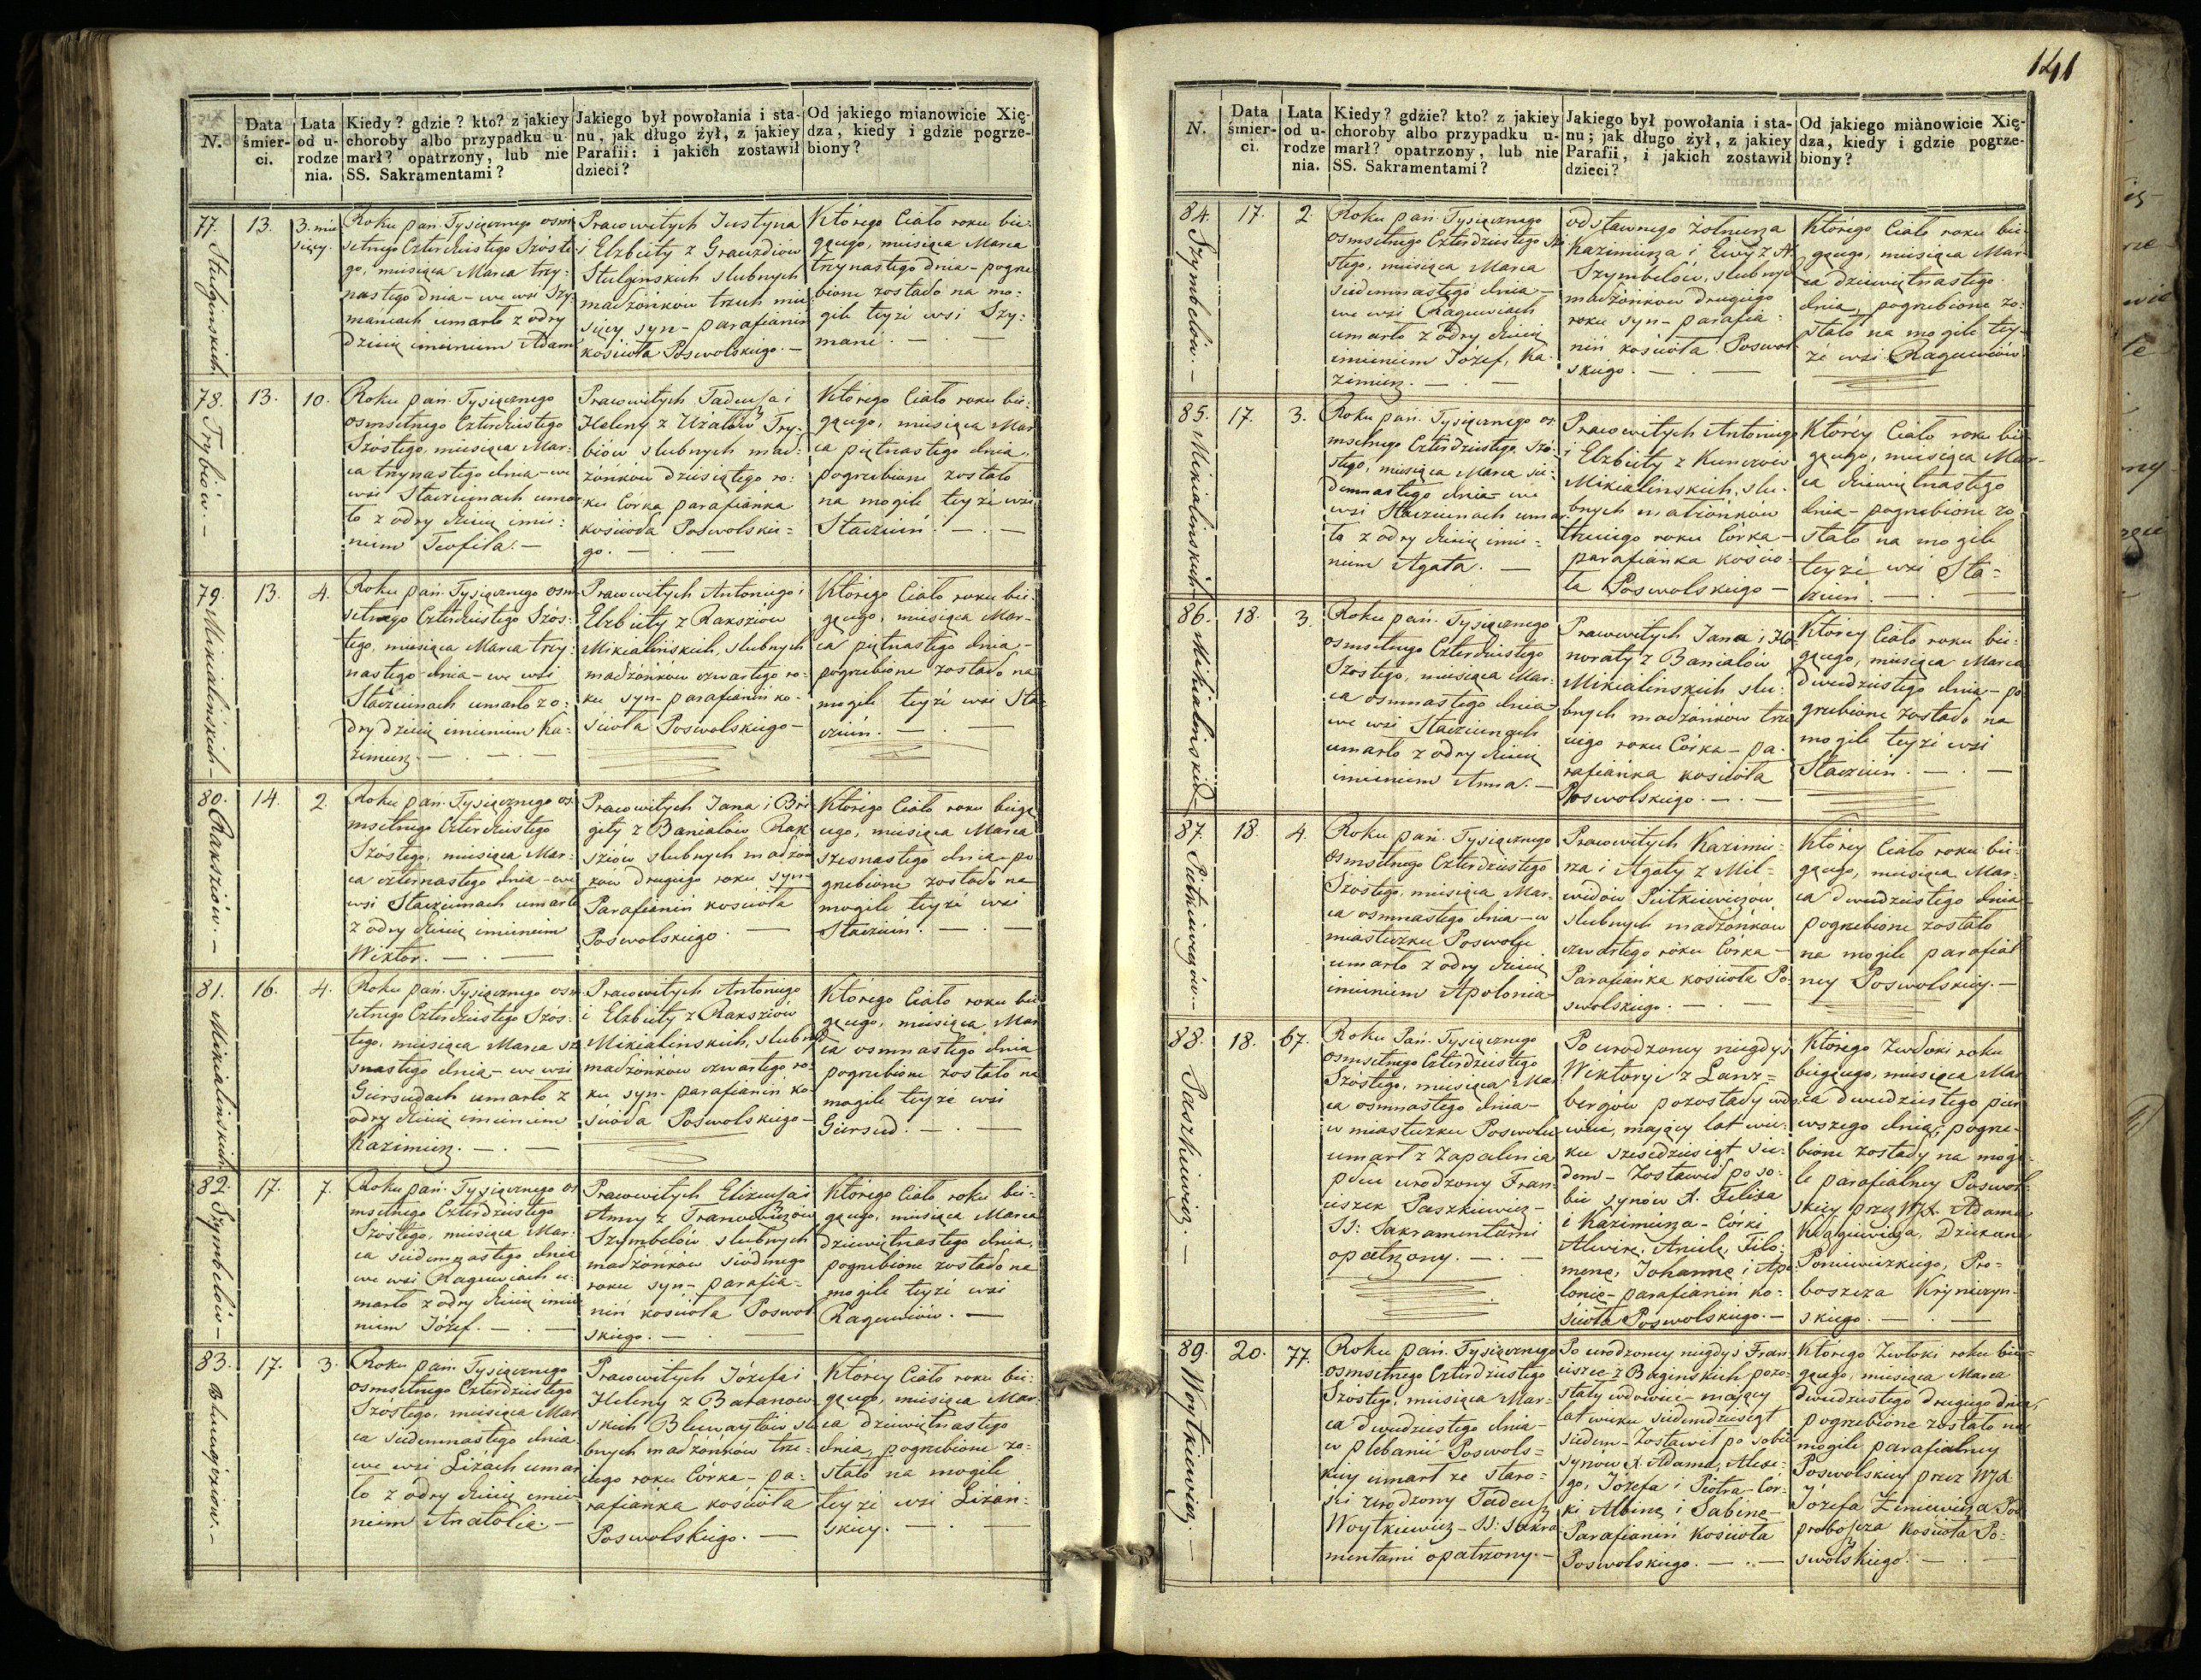 141
N.
Data śmier- ci.
Lata od u- rodze nia.
Kiedy? gdzie? kto? z jakiey
choroby albo przypadku u-
marł? opatrzony, lub nie
SS. Sakramentami?
Jakiego był powołania i sta-
nu, jak długo żył, z jakiey
Parafii: i jakich zostawił
dzieci?
Od jakiego mianowicie Xię-
dza, kiedy i gdzie pogrze-
biony?
77.
Stulginskich
13.
3. mie
sięcy.
Roku pań. Tysiącznego osm
setnego Czterdziestego Szóste
go, miesiąca Marca trzy-
nastego dnia - we wsi Szy-
mańcach umarło z odry
dziecię imieniem Adam
Prawowitych Justyna
i Elżbiety z Grauzdiów
Stulginskich slubnych
małżonkow trzech mie
sięcy syn - parafianin
kościoła Poswolskiego. —
Którego Ciało roku bie-
gącego, miesiąca Marca
trzynastego dnia - pogrze
bione zostało na mo-
gile teyże wsi Szy-
mane. —
78.
Trybiów. —
13.
10.
Roku pań. Tysiącznego
osmsetnego Czterdziestego
Szóstego, miesiąca Mar-
ca trzynastego dnia - we
wsi Staczunach umar
ło z odry dziecię imie-
niem Teofila. —
Prawowitych Tadeusza i
Heleny z Użałów Try-
biów slubnych mał-
żónków dziesiątego ro-
ku Córka parafianka
kościoła Poswolskie-
go. —
Którego Ciało roku bie-
gącego, miesiąca Mar
ca piętnastego dnia,
pogrzebione zostało
na mogile teyże wsi
Staczuń. —
79.
Mikialińskich —
13.
4.
Roku pań. Tysiącznego osm
setnego Czterdziestego Szós-
tego, miesiąca Marca trzy-
nastego dnia - we wsi
Staczunach umarło z o-
dry dziecię imieniem Ka-
zimierz. —
Prawowitych Antoniego i
Elzbiety z Rakszów
Mikialińskich, slubnych
małżónkow czwartego ro-
ku syn - parafianin ko-
ścioła Poswolskiego —
Którego Ciało roku bie-
gącego, miesiąca Mar-
ca piętnastego dnia -
pogrzebione zostało na
mogile teyże wsi Sta-
czuń. —
80.
Rakszów. —
14.
2.
Roku pań. Tysiącznego os-
msetnego Czterdziestego
Szóstego, miesiąca Mar-
ca czternastego dnia - we
wsi Staczunach umarło
z odry dziecię imieniem
Wiktor. —
Prawowitych Jana i Bry
gity z Banialów Rak
sziów slubnych małżón
ków drugiego roku syn
Parafianin kościoła
Poswolskiego. —
Którego Ciało roku biegą
cego, miesiąca Marca
szesnastego dnia - po
grzebione zostało na
mogile teyże wsi
Staczuń. —
81.
Mikialinskich
16.
4.
Roku pań. Tysiącznego osm
setnego Czterdziestego Szós-
tego, miesiąca Marca sze
snastego dnia - we wsi
Giersudach umarło z
odry dziecię imieniem
Kazimierz. —
Prawowitych Antoniego
i Elzbiety z Raksziów
Mikialinskich, slubnych
małżónków czwartego ro-
ku syn - parafianin ko
ścioła Poswolskiego —
Którego Ciało roku bie
gącego, miesiąca Mar
ca osmnastego dnia
pogrzebione zostało na
mogile teyże wsi
Giersud. —
82.
Szymbelów —
17.
7.
Roku pań. Tysiącznego os
msetnego Czterdziestego
Szóstego, miesiąca Mar-
ca siedemnastego dnia
we wsi Raguwiach u-
marło z odry dziecię imie
niem Józef. —
Prawowitych Elizeusza i
Anny z
Szymbelów slubnych
małżónków siódmego
roku syn - parafia-
nin kościoła Poswol
skiego. —
Którego Ciało roku bie-
gącego, miesiąca Marca
dziewiętnastego dnia,
pogrzebione zostało na
mogile teyże wsi
Raguwiów. —
83.
17.
3.
Roku pań. Tysiącznego
osmsetnego Czterdziestego
Szóstego, miesiąca Mar
ca siedemnastego dnia
we wsi Liżach umar
ło z odry dziecię imie
niem Anatolia. —
Prawowitych Józefa i
Heleny z Baranow-
skich Bluwaytiów slu
bnych małżónków trze-
ciego roku Córka - pa-
rafianka kościoła
Poswolskiego. —
Którey Ciało roku bie-
gącego, miesiąca Mar-
ca dziewiętnastego
dnia, pogrzebione zo-
stało na mogile
teyże wsi Liżan-
skiey. —
N.
Data śmier- ci.
Lata od u- rodze nia.
Kiedy? gdzie? kto? z jakiey
choroby albo przypadku u-
marł? opatrzony, lub nie
SS. Sakramentami?
Jakiego był powołania i sta-
nu; jak długo żył, z jakiey
Parafii, i jakich zostawił
dzieci?
Od jakiego mianowicie Xię-
dza, kiedy i gdzie pogrze-
biony?
84.
Szymbelów. —
17.
2.
Roku pań. Tysiącznego
osmsetnego Czterdziestego Szó
stego, miesiąca Marca
siedemnastego dnia —
we wsi Raguwiach
umarło z odry dziecię
imieniem Józef, Ka-
zimierz. —
odstawnego żołnierza
Kazimierza i Ewy z N.
Szymbelów, slubnych
małżónkow drugiego
roku syn - parafia-
nin kościoła Poswol
skiego. —
Którego Ciało roku bie-
gącego, miesiąca Mar-
ca dziewiętnastego
dnia, pogrzebione zo-
stało na mogile tey-
że wsi Raguwiów
85.
Mikialinskich
17.
3.
Roku pań. Tysiącznego os-
msetnego Czterdziestego Szó-
stego, miesiąca Marca sie-
demnastego dnia - we
wsi Staczunach umar
ło z odry dziecię imie-
niem Agata. —
Prawowitych Antoniego
i Elzbiety z Kunców
Mikialinskich, slu-
bnych małżónkow
trzeciego roku Córka -
parafianka kościo-
ła Poswolskiego —
Którey Ciało roku bie
gącego, miesiąca Mar-
ca dziewiętnastego
dnia - pogrzebione zo
stało na mogile
teyże wsi Sta-
czuń. —
86.
Mikialinskich
18.
3.
Roku pań. Tysiącznego
osmsetnego Czterdziestego
Szóstego, miesiąca Mar-
ca osmnastego dnia -
we wsi Staczunach
umarło z odry dziecię
imieniem Anna. —
Prawowitych Jana i Ho
noraty z Banialów
Mikialinskich slu-
bnych małżónków trze
ciego roku Córka - pa-
rafianka kościoła
Poswolskiego. —
Którey Ciało roku bie-
gącego, miesiąca Marca
dwudziestego dnia - po
grzebione zostało na
mogile teyże wsi
Staczun. —
87.
Pietkiewiczów. —
18.
4.
Roku pań. Tysiącznego
osmsetnego Czterdziestego
Szóstego, miesiąca Mar-
ca osmnastego dnia - w
miasteczku Poswolu
umarło z odry dziecię
imieniem Apolonia
Prawowitych Kazimie-
rza i Agaty z Mil-
widów Pietkiewiczów
slubnych małżónków
czwartego roku Córka -
Parafianka kościoła Po-
swolskiego. —
Którey Ciało roku bie-
gącego, miesiąca Mar-
ca dwudziestego dnia
pogrzebione zostało
na mogile parafial
ney Poswolskiey. —
88.
Paszkiewicz. —
18.
67.
Roku Pań. Tysiącznego
osmsetnego Czterdziestego
Szóstego, miesiąca Mar
ca osmnastego dnia -
w miasteczku Poswolu
umarł z Zapalenia
płuc urodzony Fran-
ciszek Paszkiewicz -
SS: Sakramentami
opatrzony. —
Po urodzoney niegdyś
Wiktoryi z Lanz-
bergów pozostały wdo
wiec, mający lat wie-
ku szesédziesiąt sie-
dem - Zostawił po so-
bie synów X. Felixa
i Kazimierza - Córki
Alwirę, Anielę, Filo-
menę, Johannę i Apo
lonię - parafianin ko-
ścioła Poswolskiego. —
Którego Zwłoki roku
biegącego, miesiąca Mar
ca dwudziestego pier
wszego dnia, pogrze-
bione zostały na mogi-
le parafialney Poswol-
skiey przez WJX. Adama
Dziekana
Poniewiezkiego, Pro-
boszcza Kryniczyn-
skiego. —
89.
Woytkiewicz. —
20.
77.
Roku pań. Tysiącznego
osmsetnego Czterdziestego
Szóstego, miesiąca Mar-
ca dwudziestego dnia -
w plebanii Poswols-
kiey umarł ze staro-
ści urodzony Tadeusz
Woytkiewicz - SS: Sakra
mentami opatrzony. —
Po urodzoney niegdyś Fran
ciszce z Baginskich pozo-
stały wdowiec - mający
lat wieku siedemdziesiąt
siedem - Zostawił po sobie
synów X. Adama, Alexe-
go, Józefa i Piotra - Cór-
ki Albinę i Sabinę -
Parafianin Kościoła
Poswolskiego. —
Którego Zwłoki roku bie-
gącego, miesiąca Marca
dwudziestego drugiego dnia,
pogrzebione zostało na
mogile parafialney
Poswolskiey przez WJX
Józefa Zeniewicza Pod
proboszcza kościoła Po-
swolskiego. —